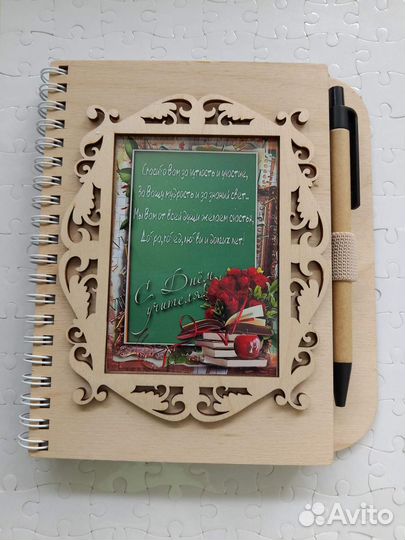 Спасибо вам за чуткость и участие,
За вашу мудрость и за знаний свет...
Мы вам от всей души желаем счастья,
Добра, побед, любви и долгих лет!
С Днём
учителя!
Avito